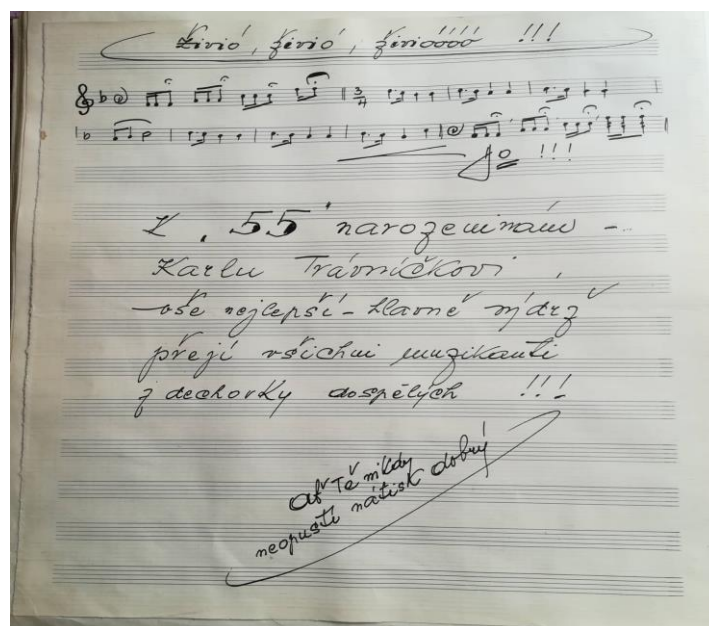 Živió, živió, živióóóó !!!
!!!
K. 55 narozeninám -
Karlu Trávníčkovi,
vše nejlepší - hlavně výdrž
přejí všichni muzikanti
z dechovky dospělých !!!
Ať Tě nikdy
neopustí nátisk dobrý